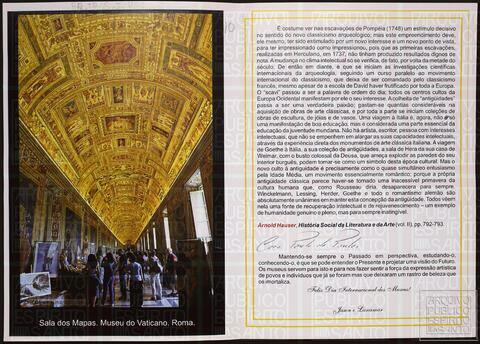 Sala dos Mapas. Museu do Vaticano, Roma.
E costume ver nas escavações de Pompéia (1748) um estímulo decisivo
no sentido do novo classicismo arqueológico; mas este empreendimento deve,
ele mesmo, ter sido estimulado por um novo interesse e um novo ponto de vista,
para ter impressionado como impressionou, pois que as primeiras escavações,
realizadas em Herculano, em 1737, não tinham produzido resultados dignos de
nota. A mudança no clima intelectual só se verifica, de fato, por volta da metade do
século. De então em diante, é que se iniciam as investigações científicas
internacionais da arqueologia, seguindo um curso paralelo ao movimento
internacional do classicismo, que deixa de ser comandado pelo classicismo
francês, mesmo apesar de a escola de David haver frutificado por toda a Europa.
O "scavi" passou a ser a palavra de ordem do dia; todos os centros cultos da
Europa Ocidental manifestam por ele o seu interesse. A colheita de "antiguidades"
passa a ser uma verdadeira paixão; gastam-se quantias consideráveis na
aquisição de obras de arte clássicas, e por toda a parte se iniciam coleções de
obras de escultura, de jóias e de vasos. Uma viagem à Itália é, agora, não só
uma manifestação de boa educação, mas é considerada uma parte essencial da
educação da juventude mundana. Não há artista, escritor, pessoa com interesses
intelectuais, que não se empenhem em alargar as suas capacidades intelectuais,
através da experiência direta dos monumentos de arte clássica italiana. A viagem
de Goethe à Itália, a sua coleção de antiguidades, a sala de Hera da sua casa de
Weimar, com o busto colossal da Deusa, que ameça explodir as paredes do seu
interior burguês, podem tomar-se como um símbolo desta época cultural. Mas o
novo culto à antiguidade é precisamente como o quase simultâneo entusiasmo
pela Idade Média, um movimento essencialmente romântico; porque a própria
antiguidade clássica parece haver-se tornado uma inacessível primavera da
cultura humana que, como Rousseau diria, desaparecera para sempre.
Winckelmann, Lessing, Herder, Goethe e todo o romantismo alemão são
absolutamente unânimes em manter esta concepção da antiguidade. Todos vêem
nela uma fonte de recuperação intelectual e de rejuvenescimento – um exemplo
de humanidade genuíno e pleno, mas para sempre inatingível.
Arnold Hauser, História Social da Literatura e da Arte (vol. II), pp. 792-793.
Mantendo-se sempre o Passado em perspectiva, estudando-o,
conhecendo-o, é que se pode entender o Presente e projetar uma visão do Futuro.
Os museus servem para isto e para nos fazer sentir a força da expressão artística
de povos e indivíduos que já se foram mas que deixaram um rastro de beleza que
os imortaliza.
Feliz Dia Internacional dos Museus!
ARQUIVO
PÚBLICO